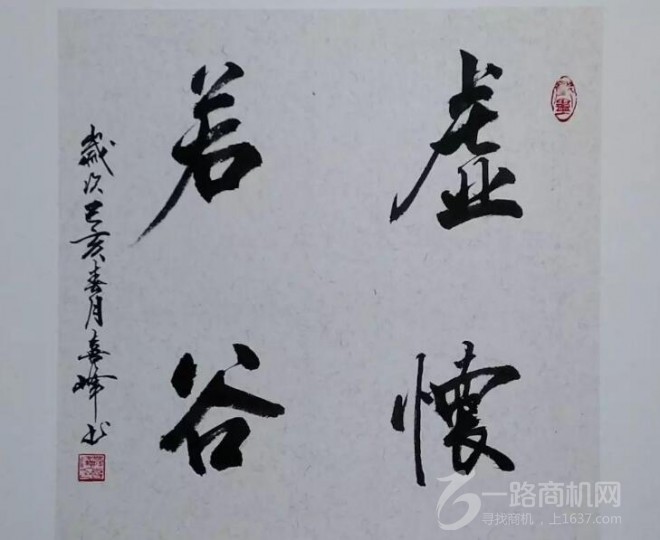 虚懷
若谷
歲次己亥春月喜峰书
一路商机网
寻找商机，上1637.com